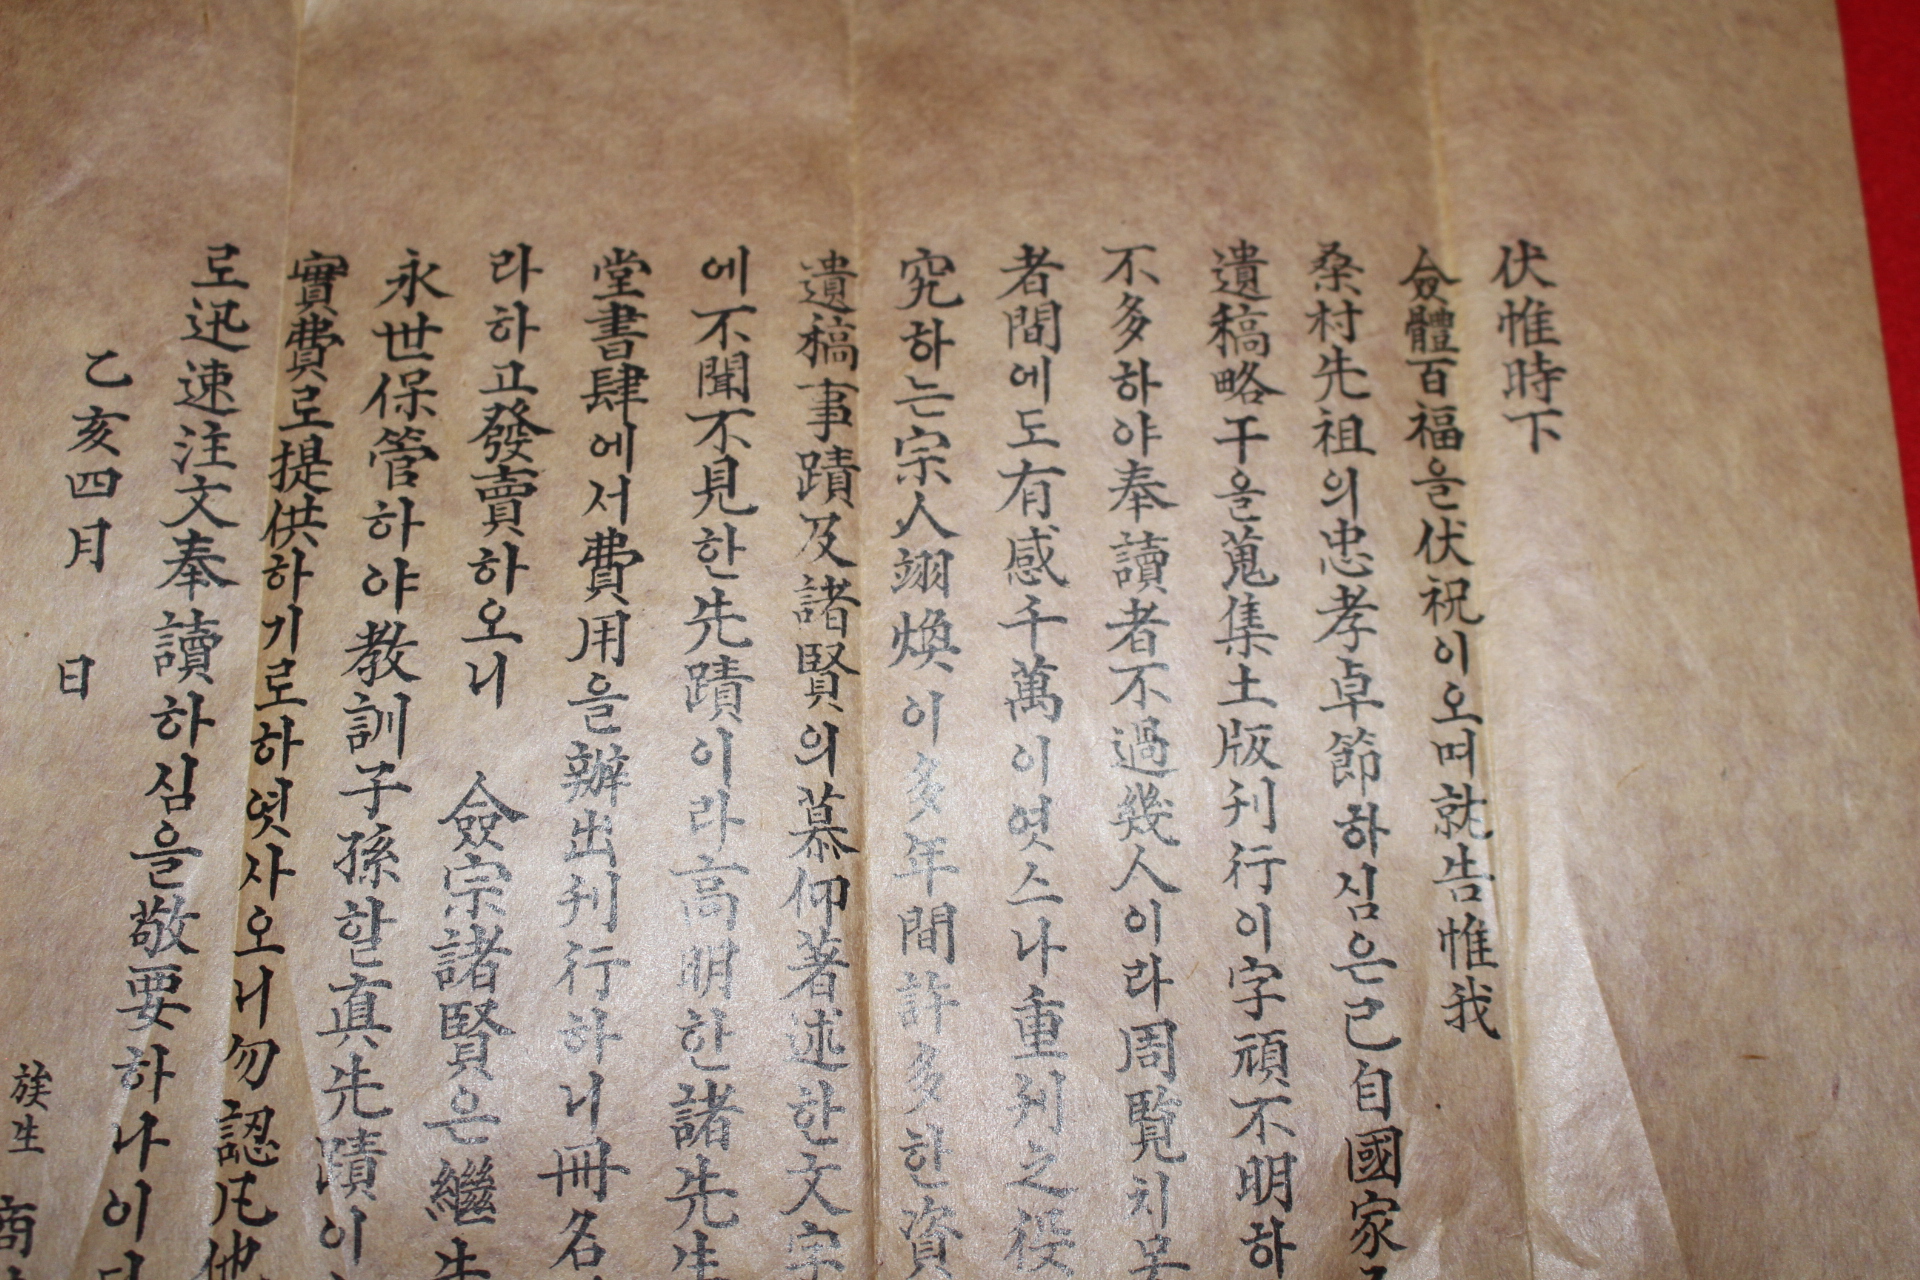 伏惟時下
僉體百福을伏祝이오며就告惟我
桑村先祖의忠孝卓節하심은已自國家
遺稿略干을蒐集土版刊行이字頑不明하
不多하야奉讀者不過幾人이라周覽치못
者間에도有感千萬이엿스나重刊之役
究하는宗人翊煥이多年間許多한資
遺稿事蹟及諸賢의慕仰著述한文字
에不聞不見한先蹟이라高明한諸先生
堂書肆에서費用을辦出刊行하니冊名
라하고發賣하오니 僉宗諸賢은繼生
永世保管하야教訓子孫할真先蹟이
實費로提供하기로하엿사오니勿認凡他
로迅速注文奉讀하심을敬要하나이다
乙亥四月 日
族生 商